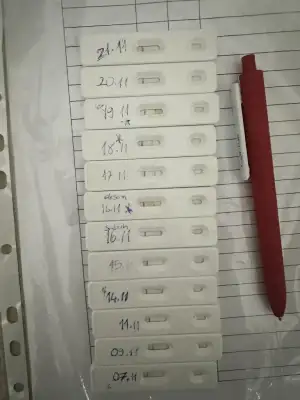 21.11
20.11
19.11
18.11
17.11
16.11
16.11
15.11
14.11
11.11
09.11
07.11